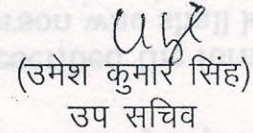 (उमेश कुमार सिंह)
उप सचिव